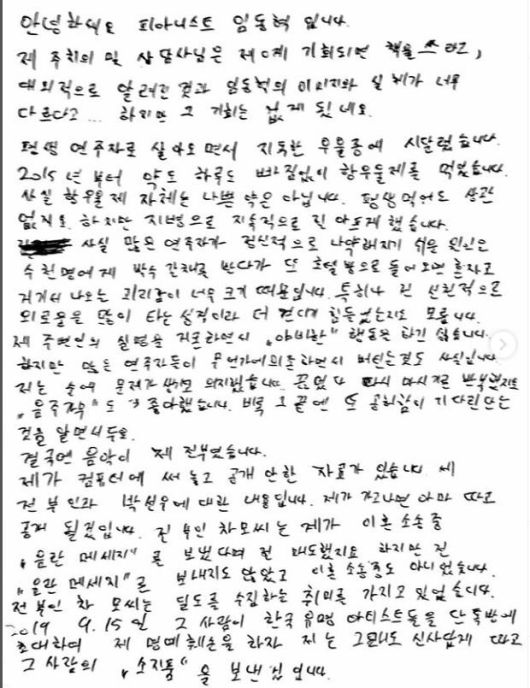 안녕하세요 피아니스트 임동혁 입니다.
제 주치의 및 상담사님은 제게 기회되면 책을 쓰라고,
대외적으로 알려진 것과 임동혁의 이미지와 실제가 너무
다르다고... 하지만 그 기회는 없게 됐네요.
평생 연주자로 살아오면서 지독한 우울증에 시달렸습니다.
2015년부터 약도 하루도 빠짐없이 항우울제를 먹었습니다.
사실 항우울제 자체는 나쁜 약은 아닙니다. 평생 먹어도 상관
없지요. 하지만 지병으로 지속적으로 전 아프게 했습니다.
사실 많은 연주자가 정신적으로 나약해지기 쉬운 원인은
수천명에게 박수 갈채를 받다가 또 호텔 방으로 들어오면 혼자고
거기서 나오는 괴리감이 너무 크기 때문입니다. 특히나 전 선천적으로
외로움을 많이 타는 성격이라 더 견디기 힘들었는지도 모릅니다.
제 주변인의 실명을 거론하면서 "야비한" 행동은 하긴 싫습니다.
하지만 많은 연주자들이 무언가에 의존하면서 버틴는것도 사실입니다.
저는 술에 문제가 생기면 의지했습니다. 끊었다 다시 마시기를 반복했지요
"음주가무"도 좋아했습니다. 비록 그 끝엔 또 공허함이 기다린다는
것을 알면서두요.
결국엔 음악이 제 전부였습니다.
제가 컴퓨터에 써 놓고 공개 안한 자료가 있습니다. 제
전 부인과 박선우에 대한 내용입니다. 제가 가고나면 아마 따로
공개 될것입니다. 전 부인 차모씨는 제가 이혼 소송 중
"음란 메세지"를 보냈다며 절 매도했지요 하지만 전
"음란 메세지"를 보내지도 않았고 이혼 소송중도 아니었습니다.
전부인 차 모씨는 딜도를 수집하는 취미를 가지고 있었습니다.
2019 9.15일 그 사람이 한국 유명 아티스트들을 단톡방에
초대하여 제 명예훼손을 하자 저는 그래도 신사답게 따로
그 사람의 "소지품"을 보낸겁니다.